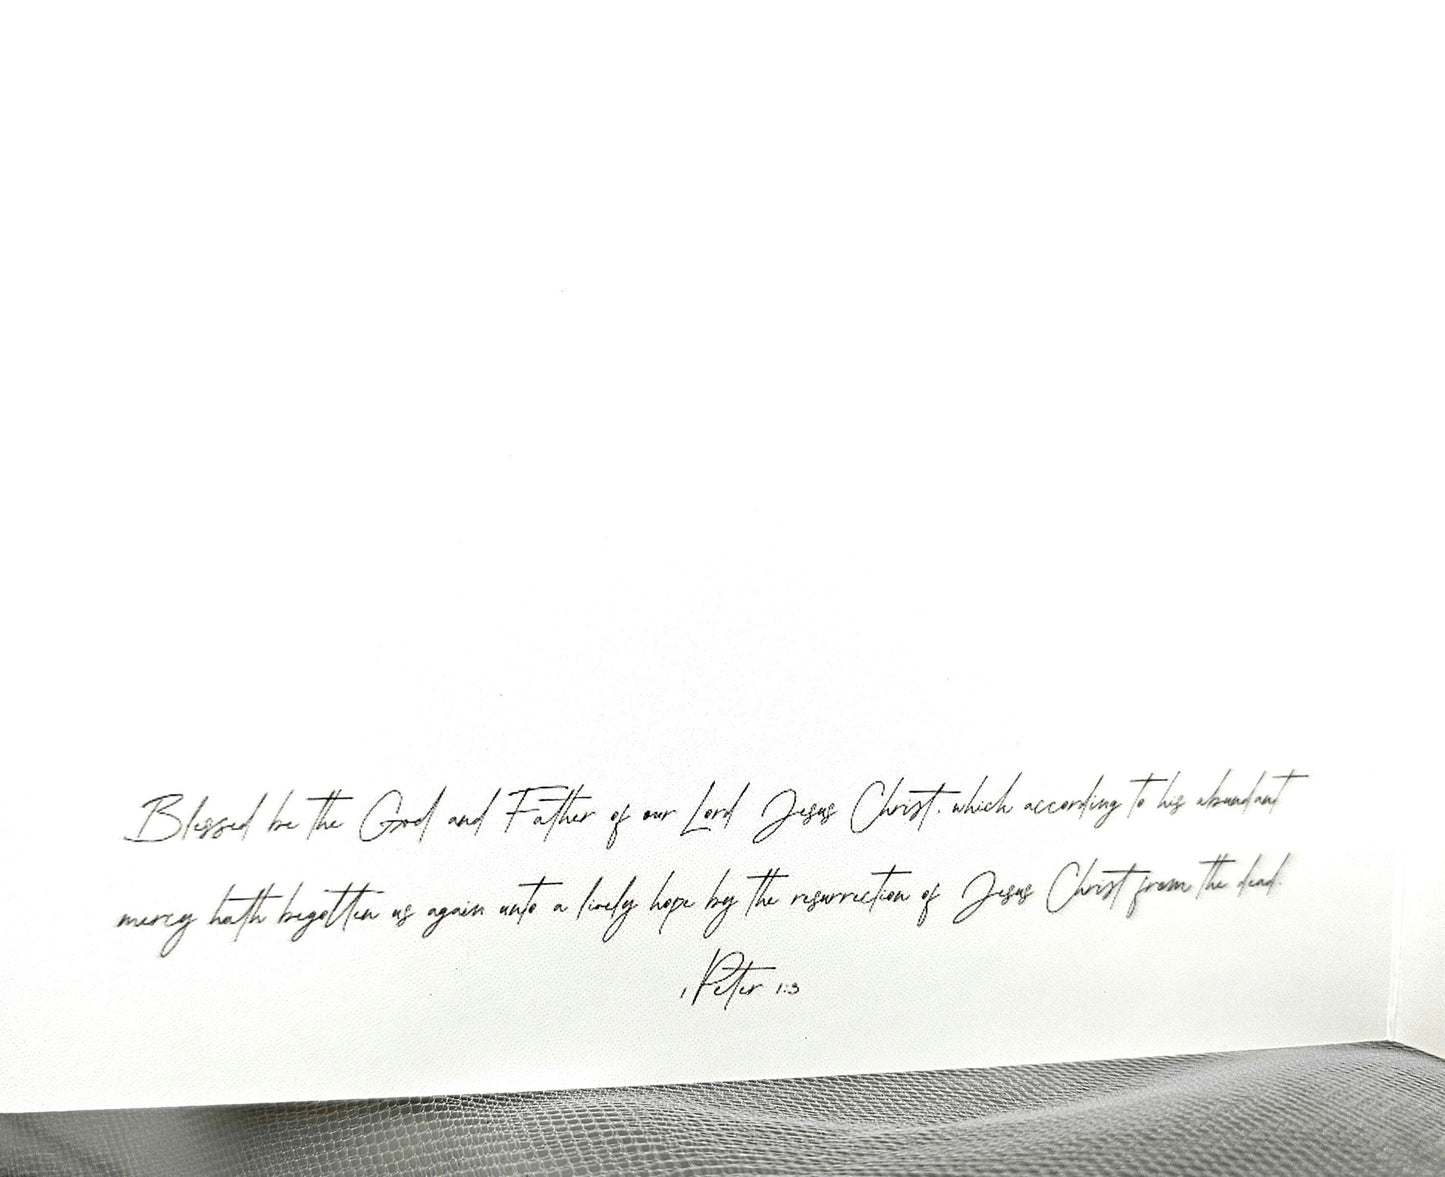 Blessed be the God and Father of our Lord Jesus Christ, which according to his abundant
mercy hath begotten us again unto a lively hope by the resurrection of Jesus Christ from the dead.
1 Peter 1:3